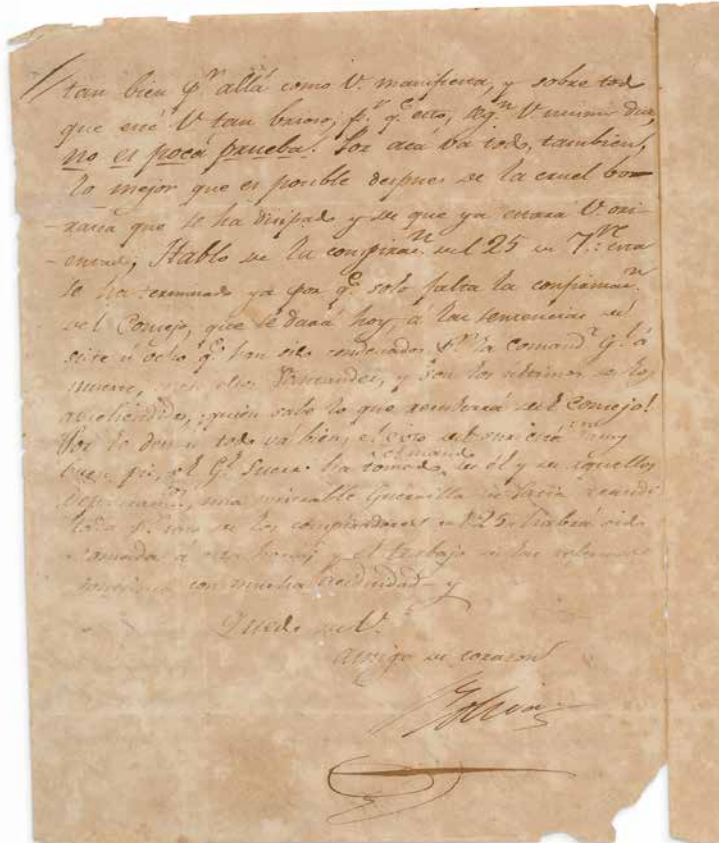 // tan bien pr allá como V. manifiesta, y sobre todo
que esté V tan brioso; pr qe esto, segn V mismo dice,
no es poca prueba. Por acá va todo, tambien,
lo mejor que es posible despues de la cruel bor-
-rasca que se ha disipado y de que ya estará V. ori-
-entado, Hablo de la conspiracn del 25 de 7re: esta
se ha terminado ya por qe solo falta la confirmacn
del Consejo, que se dará hoy, á las sentencias de
siete ú ocho qe han sido condenados pr la comanda Gl á
muerte, entre ellos Santander, y son los ultimos de los
aprehendidos, quien sabe lo que resultará del Consejo!
Por lo demas todo vá bien, el del sur está muy
buen pie, el Gl Sucre ha tomado el mando de él y de aquellos
, una miserable Guerrilla
pr uno de los conspiradores del 25 habrá sido
tomada á esta hora; y el trabajo de las reformas
con mucha actividad y
Quedo de V.
amigo de corazon
Bolivar